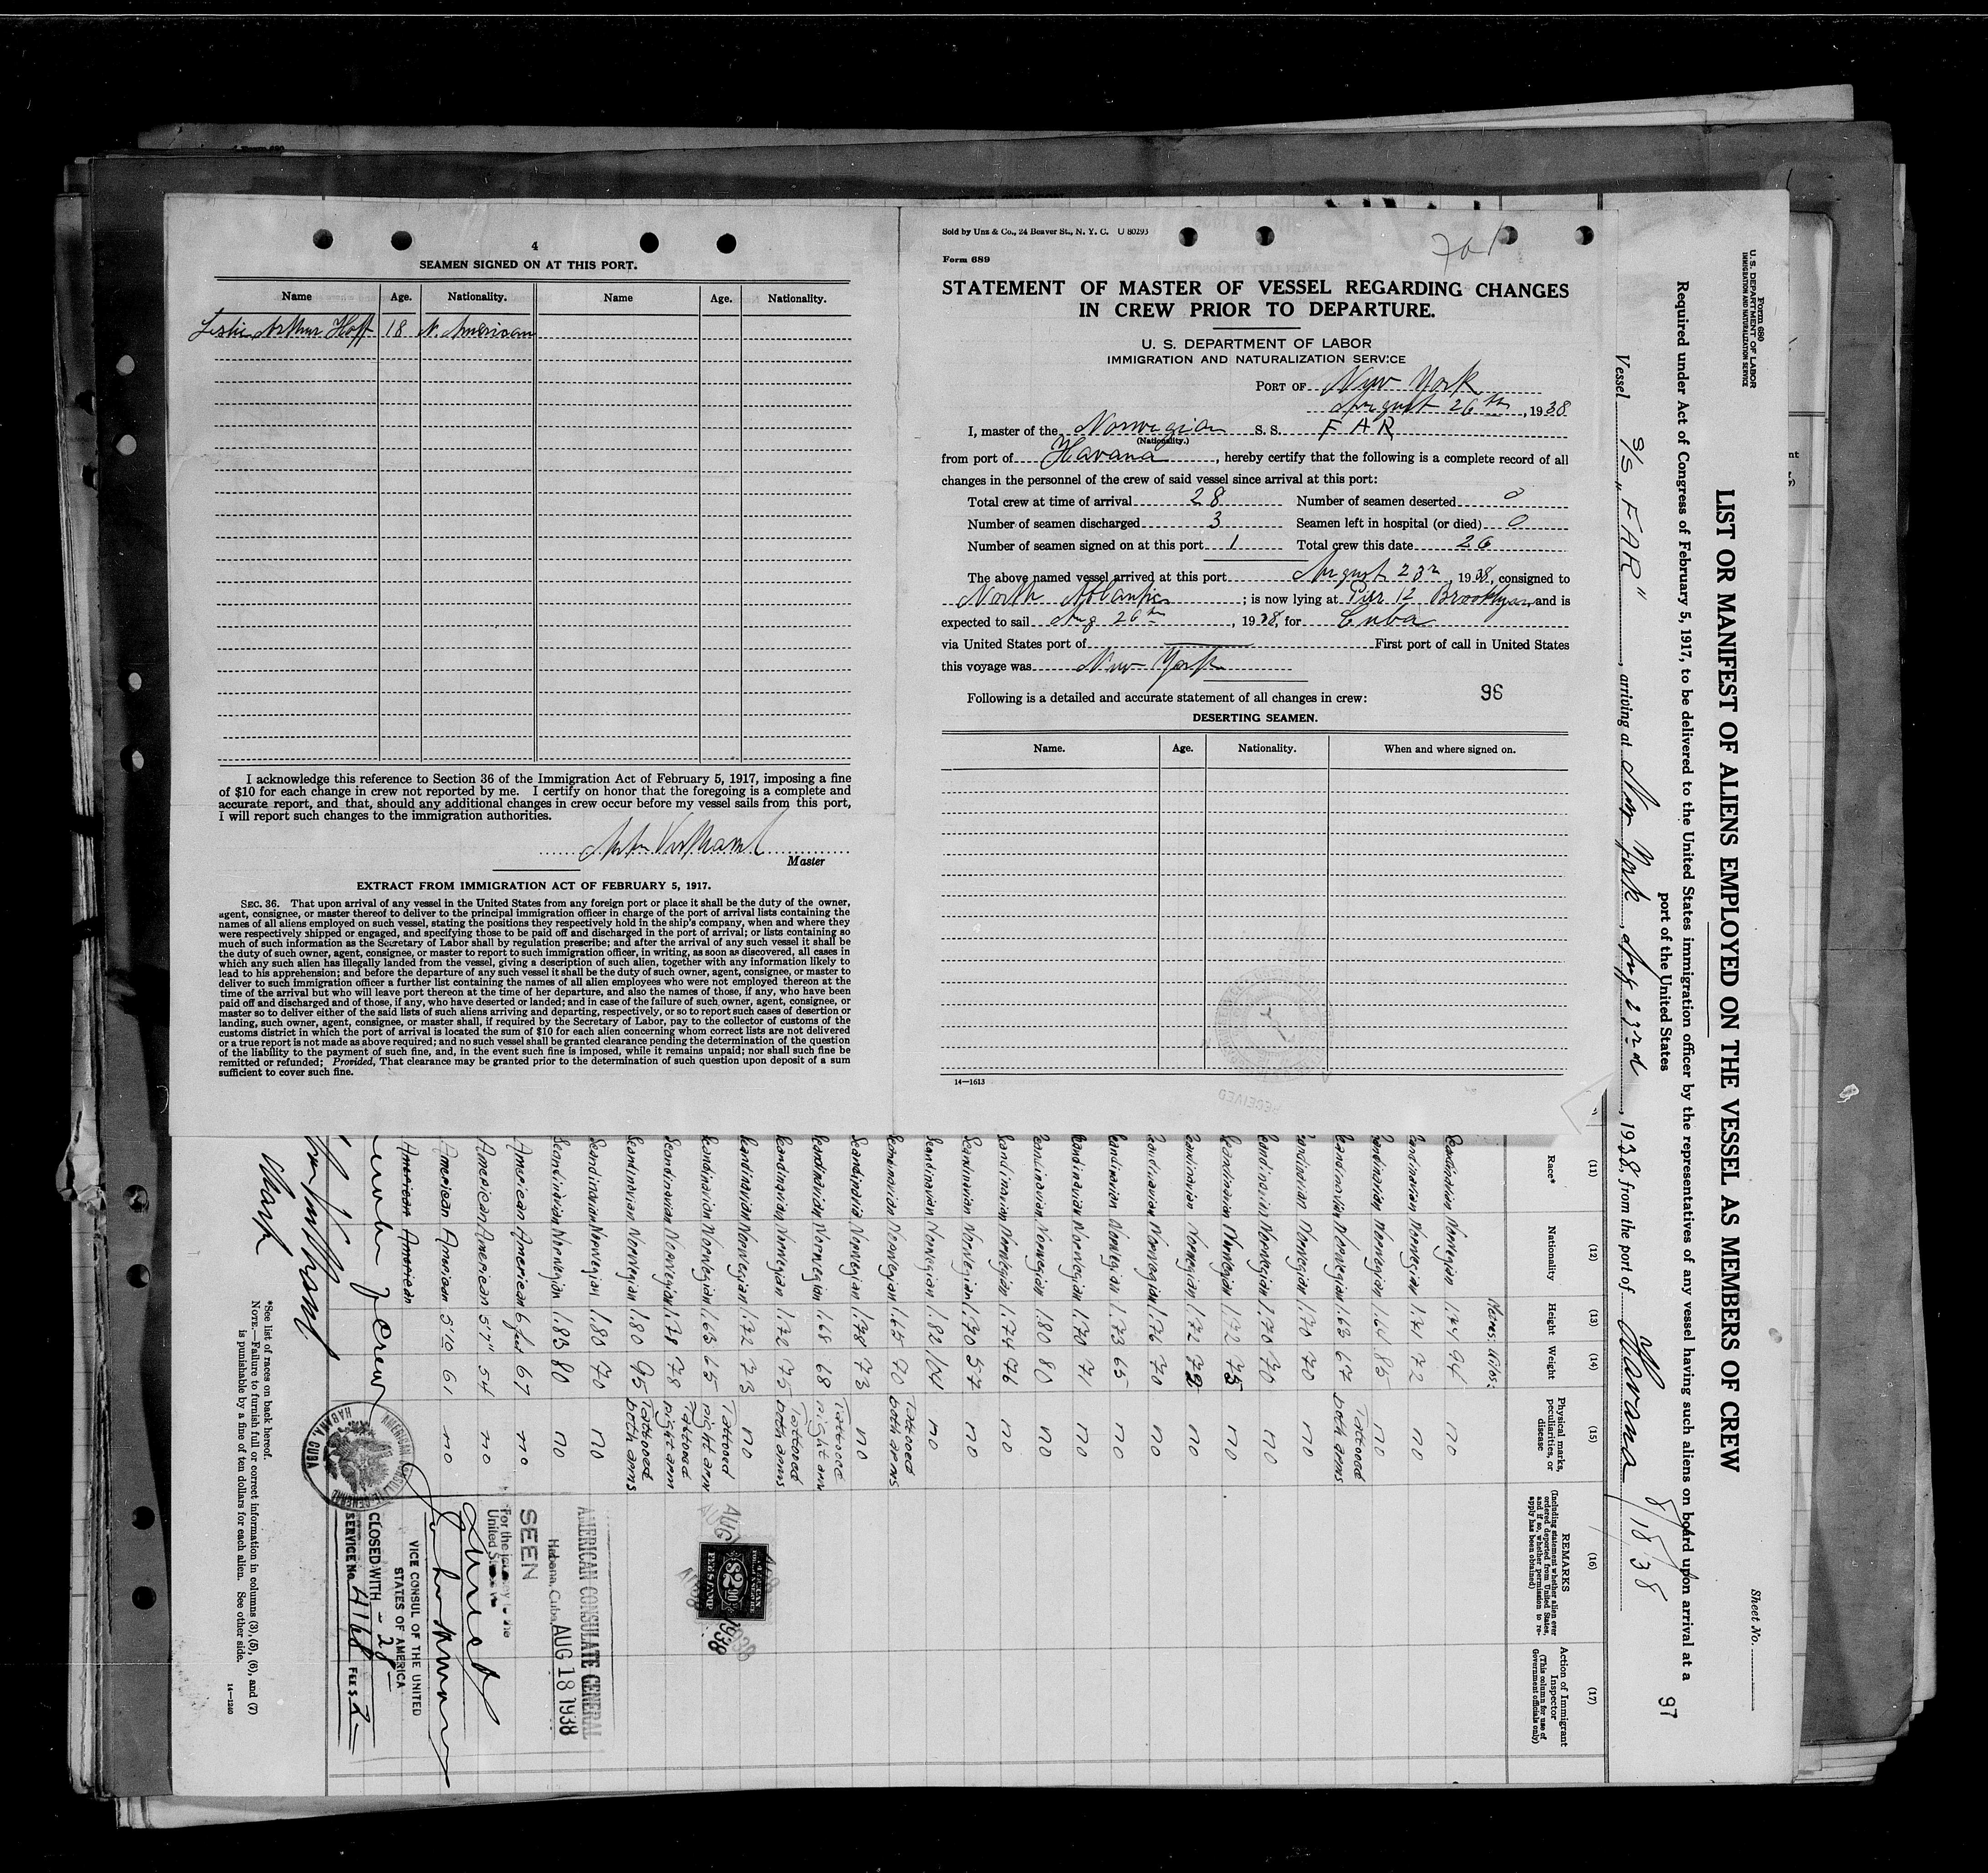 4
SEAMEN SIGNED ON AT THIS PORT.
Name Age. Nationality. Name Age. Nationality.
Leslie Arthur Hoft 18 N. American
I acknowledge this reference to Section 36 of the Immigration Act of February 5, 1917, imposing a fine
of $10 for each change in crew not reported by me. I certify on honor that the foregoing is a complete and
accurate report, and that, should any additional changes in crew occur before my vessel sails from this port,
I will report such changes to the immigration authorities.
Master
EXTRACT FROM IMMIGRATION ACT OF FEBRUARY 5, 1917.
SEC. 36. That upon arrival of any vessel in the United States from any foreign port or place it shall be the duty of the owner,
agent, consignee, or master thereof to deliver to the principal immigration officer in charge of the port of arrival lists containing the
names of all aliens employed on such vessel, stating the positions they respectively hold in the ship's company, when and where they
were respectively shipped or engaged, and specifying those to be paid off and discharged in the port of arrival; or lists containing so
much of such information as the Secretary of Labor shall by regulation prescribe; and after the arrival of any such vessel it shall be
the duty of such owner, agent, consignee, or master to report to such immigration officer, in writing, as soon as discovered, all cases in
which any such alien has illegally landed from the vessel, giving a description of such alien, together with any information likely to
lead to his apprehension; and before the departure of any such vessel it shall be the duty of such owner, agent, consignee, or master to
deliver to such immigration officer a further list containing the names of all alien employees who were not employed thereon at the
time of the arrival but who will leave port thereon at the time of her departure, and also the names of those, if any, who have been
paid off and discharged and of those, if any, who have deserted or landed; and in case of the failure of such owner, agent, consignee, or
master so to deliver either of the said lists of such aliens arriving and departing, respectively, or so to report such cases of desertion or
landing, such owner, agent, consignee, or master shall, if required by the Secretary of Labor, pay to the collector of customs of the
customs district in which the port of arrival is located the sum of $10 for each alien concerning whom correct lists are not delivered
or a true report is not made as above required; and no such vessel shall be granted clearance pending the determination of the question
of the liability to the payment of such fine, and, in the event such fine is imposed, while it remains unpaid; nor shall such fine be
remitted or refunded; Provided, That clearance may be granted prior to the determination of such question upon deposit of a sum
sufficient to cover such fine.
Sold by Unz & Co., 24 Beaver St., N. Y. C. U 80293
Form 689
STATEMENT OF MASTER OF VESSEL REGARDING CHANGES
IN CREW PRIOR TO DEPARTURE.
U. S. DEPARTMENT OF LABOR
IMMIGRATION AND NATURALIZATION SERVICE
PORT OF New York
August 26th, 1938
I, master of the Norwegian S. S. FAR
(Nationality.)
from port of Havana, hereby certify that the following is a complete record of all
changes in the personnel of the crew of said vessel since arrival at this port:
Total crew at time of arrival 28 Number of seamen deserted 0
Number of seamen discharged 3 Seamen left in hospital (or died) 0
Number of seamen signed on at this port 1 Total crew this date 26
The above named vessel arrived at this port August 23rd, 1938, consigned to
North Atlantic; is now lying at Pier 12 Brooklyn and is
expected to sail Aug 26th, 1938, for Cuba
via United States port of First port of call in United States
this voyage was New York
Following is a detailed and accurate statement of all changes in crew: 96
DESERTING SEAMEN.
Name. Age. Nationality. When and where signed on.
14—1613
RECEIVED
Form 680
U. S. DEPARTMENT OF LABOR
IMMIGRATION AND NATURALIZATION SERVICE
Sheet No.
LIST OR MANIFEST OF ALIENS EMPLOYED ON THE VESSEL AS MEMBERS OF CREW
Required under Act of Congress of February 5, 1917, to be delivered to the United States immigration officer by the representatives of any vessel having such aliens on board upon arrival at a
port of the United States
97
Vessel S/S "FAR", arriving at New York, Aug 23rd, 1938, from the port of Havana 8/18/38
(11) (12) (13) (14) (15) (16) (17)
Race* Nationality Height Weight Physical marks, peculiarities, or disease
REMARKS
(Including statement whether alien ever ordered deported from United States, and if so, whether permission to reapply has been obtained)
Action of Immigrant Inspector
(This column for use of Government officials only)
Scandinavian Norwegian 1.74 94 no
Scandinavian Norwegian 1.71 72 no
Scandinavian Norwegian 1.64 85 no
Scandinavian Norwegian 1.63 67 Tattooed both arms
Scandinavian Norwegian 1.70 70 no
Scandinavian Norwegian 1.70 70 no
Scandinavian Norwegian 1.72 75 no
Scandinavian Norwegian 1.72 72 no
Scandinavian Norwegian 1.76 70 no
Scandinavian Norwegian 1.73 65 no
Scandinavian Norwegian 1.70 71 no
Scandinavian Norwegian 1.80 80 no
Scandinavian Norwegian 1.74 76 no
Scandinavian Norwegian 1.70 57 no
Scandinavian Norwegian 1.82 104 no
Scandinavian Norwegian 1.65 70 Tattooed both arms
Scandinavia Norwegian 1.78 73 no
Scandinavian Norwegian 1.68 68 Tattooed right arm
Scandinavian Norwegian 1.72 75 Tattooed both arms
Scandinavian Norwegian 1.72 73 no
Scandinavian Norwegian 1.63 65 Tattooed right arm
Scandinavian Norwegian 1.78 78 Tattooed right arm
Scandinavian Norwegian 1.80 95 Tattooed both arms
Scandinavian Norwegian 1.80 70 no
Scandinavian Norwegian 1.83 80 no
American American 6 feet 67 no
American American 5'7" 54 no
American American 5'10 61 no
American American
crew
AMERICAN CONSULATE GENERAL
Habana, Cuba, AUG 18 1938
SEEN
For the journey to the
United States
VICE CONSUL OF THE UNITED
STATES OF AMERICA
CLOSED WITH - 28 -
SERVICE No. 4168 FEE $ 2-
AMERICAN CONSULATE GENERAL
HABANA, CUBA
$2.00
FEE STAMP
*See list of races on back hereof.
NOTE.—Failure to furnish full or correct information in columns (3), (5), (6), and (7)
is punishable by a fine of ten dollars for each alien. See other side.
14—1240